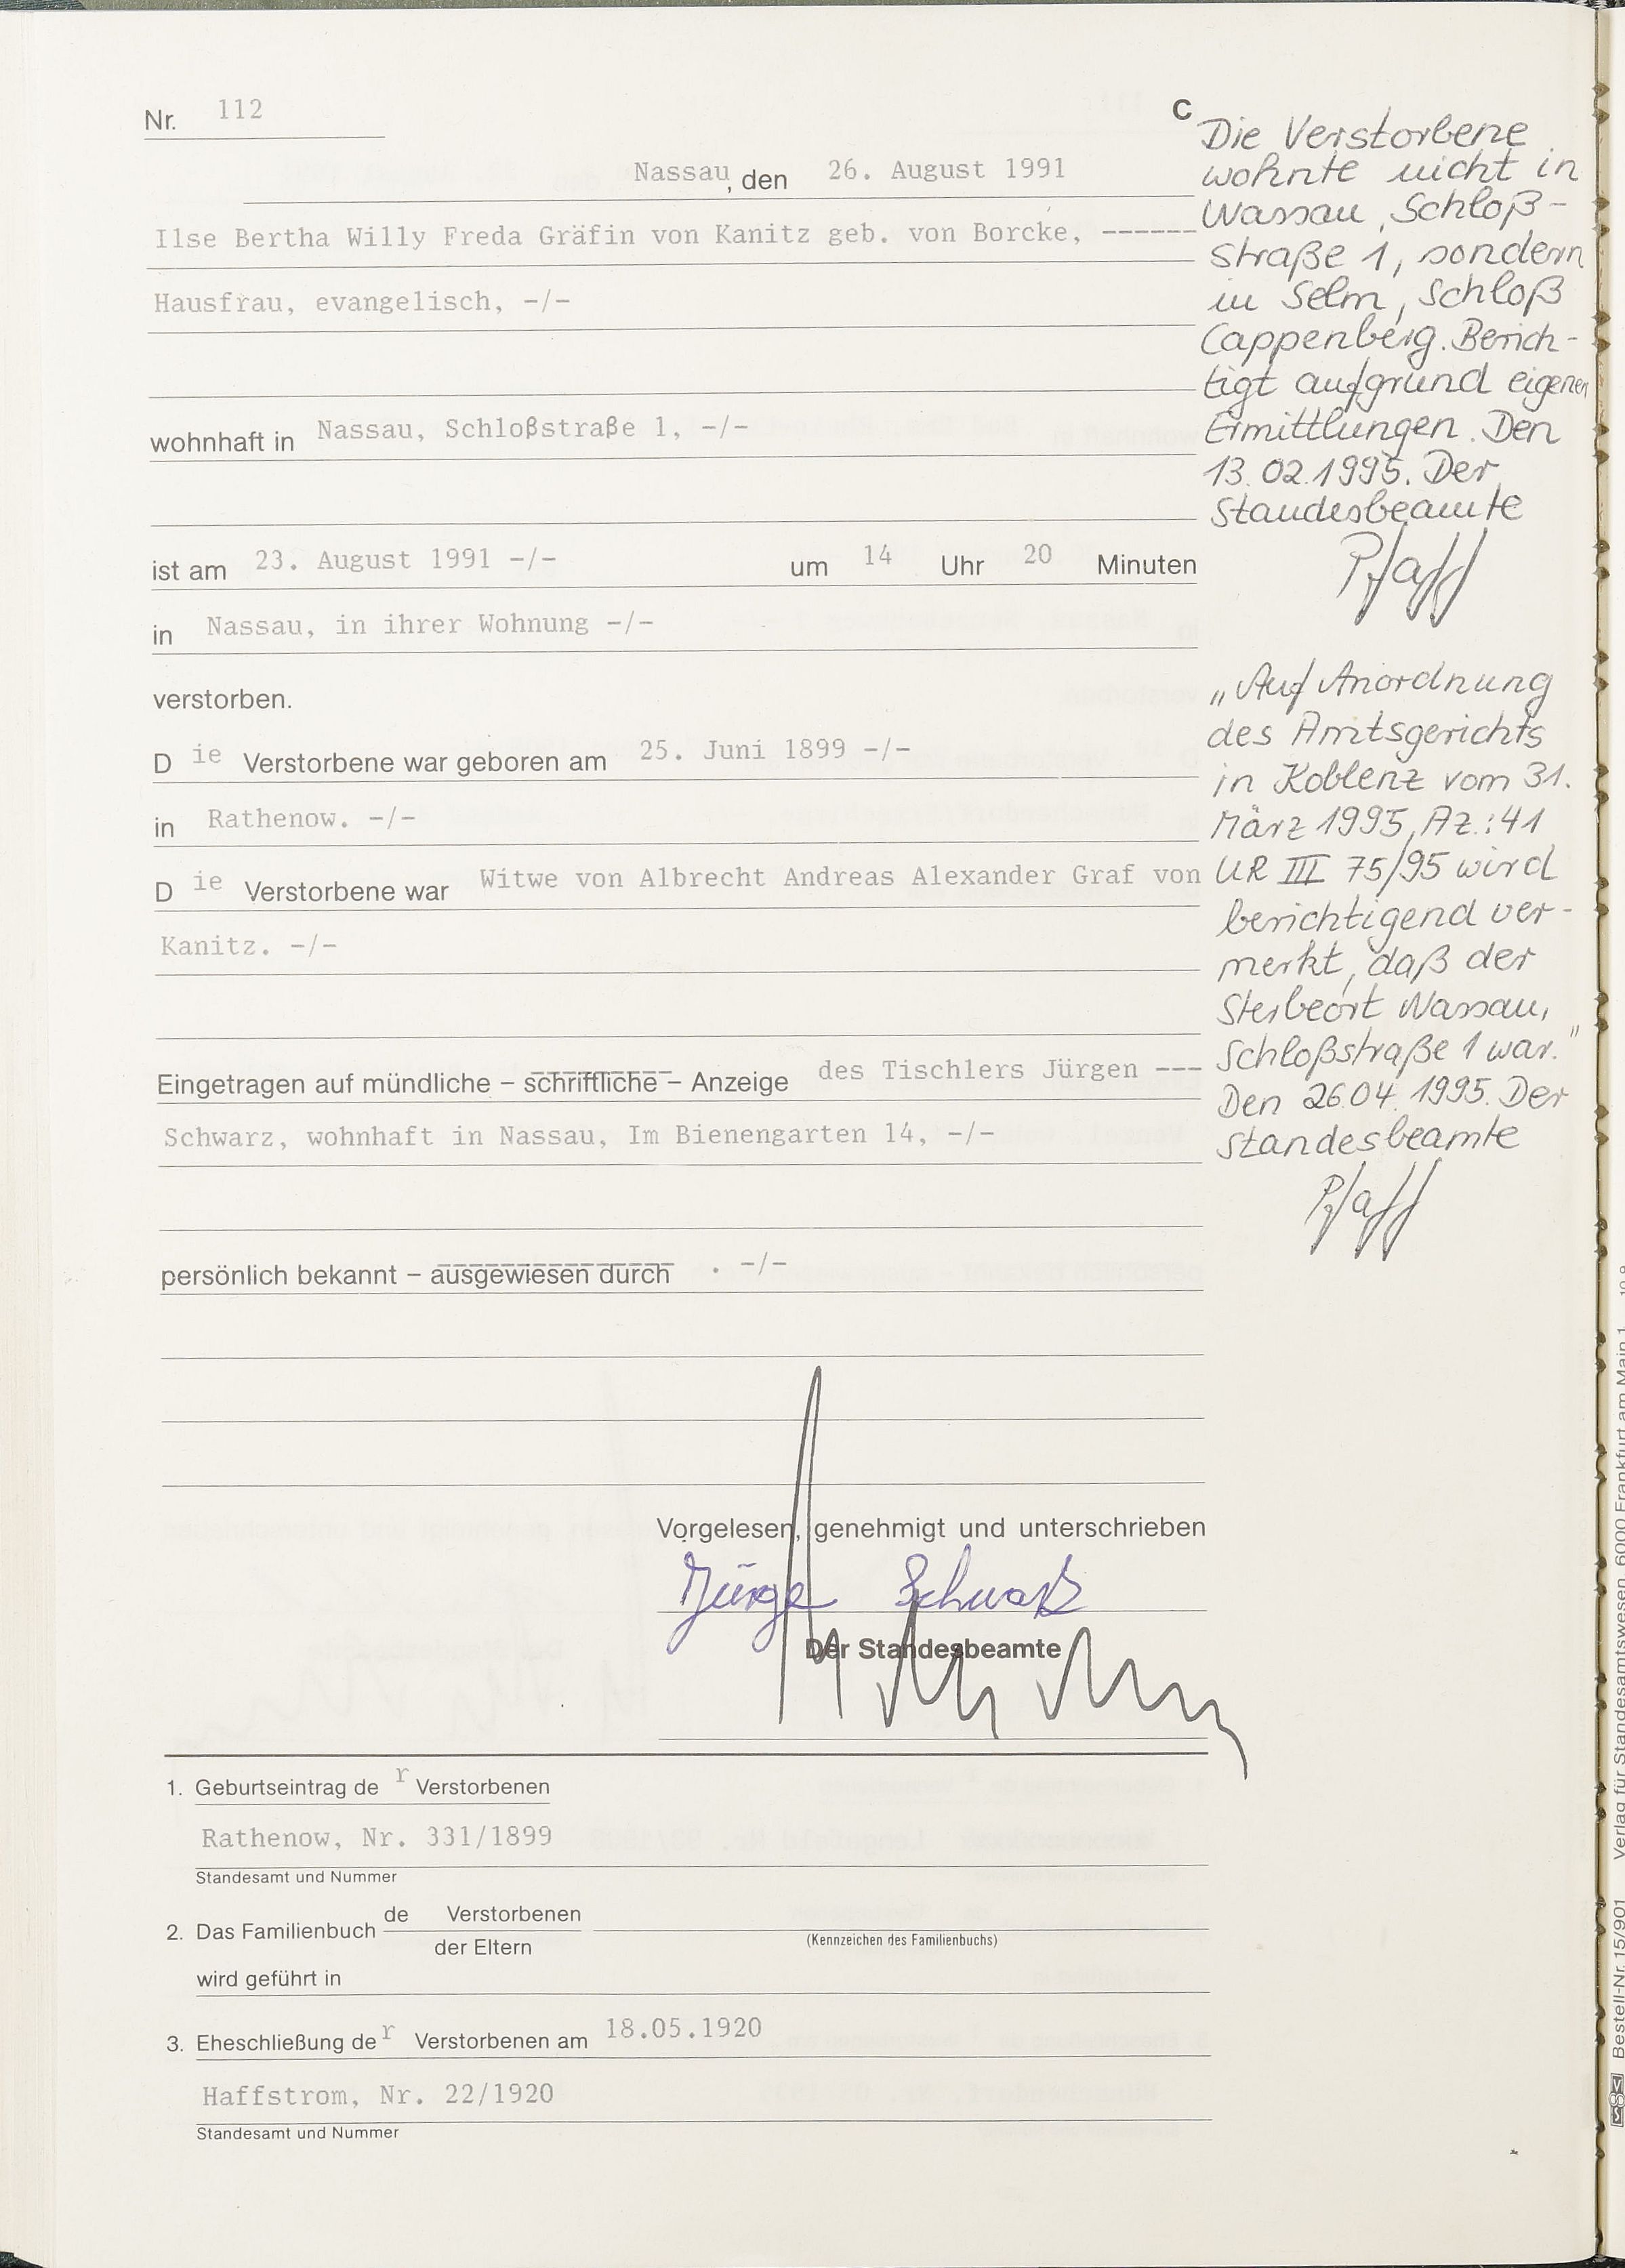 Nr. 112
C
Nassau, den 26. August 1991
Ilse Bertha Willy Freda Gräfin von Kanitz geb. von Borcke, ------
Hausfrau, evangelisch, -/-
wohnhaft in Nassau, Schloßstraße 1, -/-
ist am 23. August 1991 -/- um 14 Uhr 20 Minuten
in Nassau, in ihrer Wohnung -/-
verstorben.
D ie Verstorbene war geboren am 25. Juni 1899 -/-
in Rathenow. -/-
D ie Verstorbene war Witwe von Albrecht Andreas Alexander Graf von
Kanitz. -/-
Eingetragen auf mündliche – schriftliche – Anzeige des Tischlers Jürgen ---
Schwarz, wohnhaft in Nassau, Im Bienengarten 14, -/-
persönlich bekannt – ausgewiesen durch . -/-
Vorgelesen, genehmigt und unterschrieben
Jürge Schwarz
Der Standesbeamte
1. Geburtseintrag de r Verstorbenen
Rathenow, Nr. 331/1899
Standesamt und Nummer
2. Das Familienbuch de Verstorbenen
der Eltern
(Kennzeichen des Familienbuchs)
wird geführt in
3. Eheschließung de r Verstorbenen am 18.05.1920
Haffstrom, Nr. 22/1920
Standesamt und Nummer
Die Verstorbene
wohnte nicht in
Nassau, Schloß-
straße 1, sondern
in Selm, Schloß
Cappenberg. Berich-
tigt aufgrund eigener
Ermittlungen. Den
13.02.1995. Der
Standesbeamte
Pfaff
„Auf Anordnung
des Amtsgerichts
in Koblenz vom 31.
März 1995, Az.: 41
UR III 75/95 wird
berichtigend ver-
merkt, daß der
Sterbeort Nassau,
Schloßstraße 1 war.“
Den 26.04.1995. Der
Standesbeamte
Pfaff
Bestell-Nr. 15/901 Verlag für Standesamtswesen, 6000 Frankfurt am Main 1